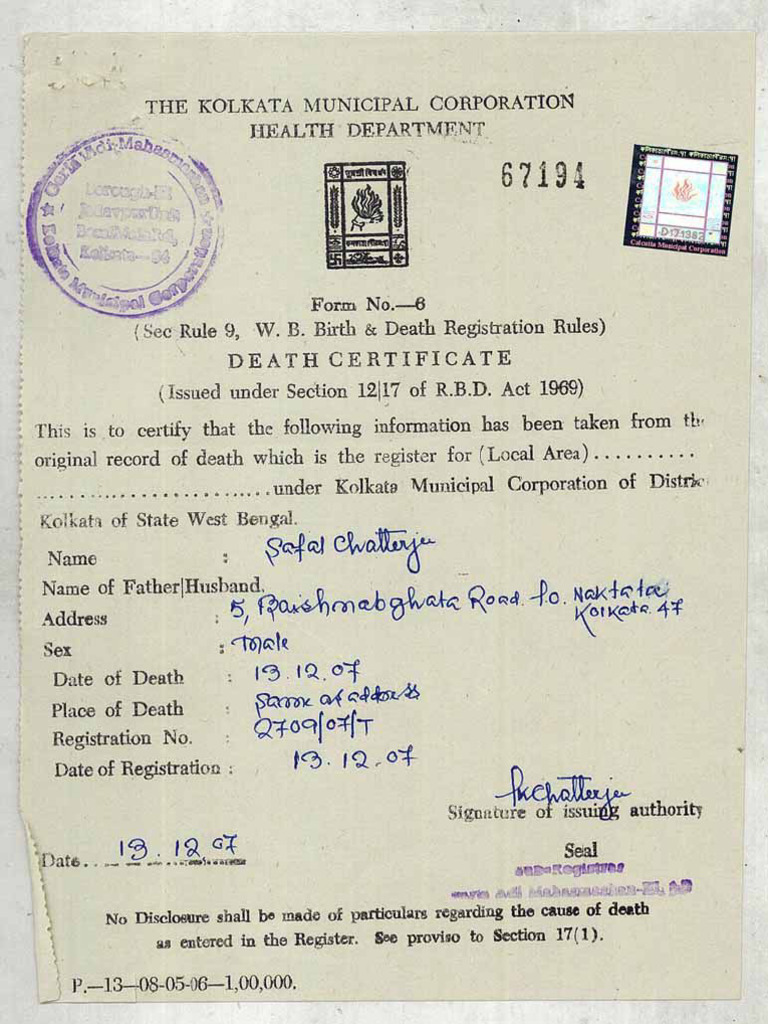 THE KOLKATA MUNICIPAL CORPORATION
HEALTH DEPARTMENT
67194
Garia Adi Mahasmashan
Borough-XI
Jadavpur Unit
Kolkata—84
Kolkata Municipal Corporation
D171382
Calcutta Municipal Corporation
Form No.—6
(Sec Rule 9, W. B. Birth & Death Registration Rules)
DEATH CERTIFICATE
(Issued under Section 12|17 of R.B.D. Act 1969)
This is to certify that the following information has been taken from th
original record of death which is the register for (Local Area)..........
........................under Kolkata Municipal Corporation of Distric
Kolkata of State West Bengal.
Name : Safal Chatterjee
Name of Father|Husband.
Address : 5, Baishnabghata Road. Po. Naktala
Kolkata. 47
Sex : Male
Date of Death : 13.12.07
Place of Death : Same as address
Registration No. : 2709/07/T
Date of Registration : 13.12.07
Signature of issuing authority
Date.. 13.12.07
Seal
Sub-Registrar
Garia Adi Mahasmashan
No Disclosure shall be made of particulars regarding the cause of death
as entered in the Register. See proviso to Section 17(1).
P.—13—08-05-06—1,00,000.